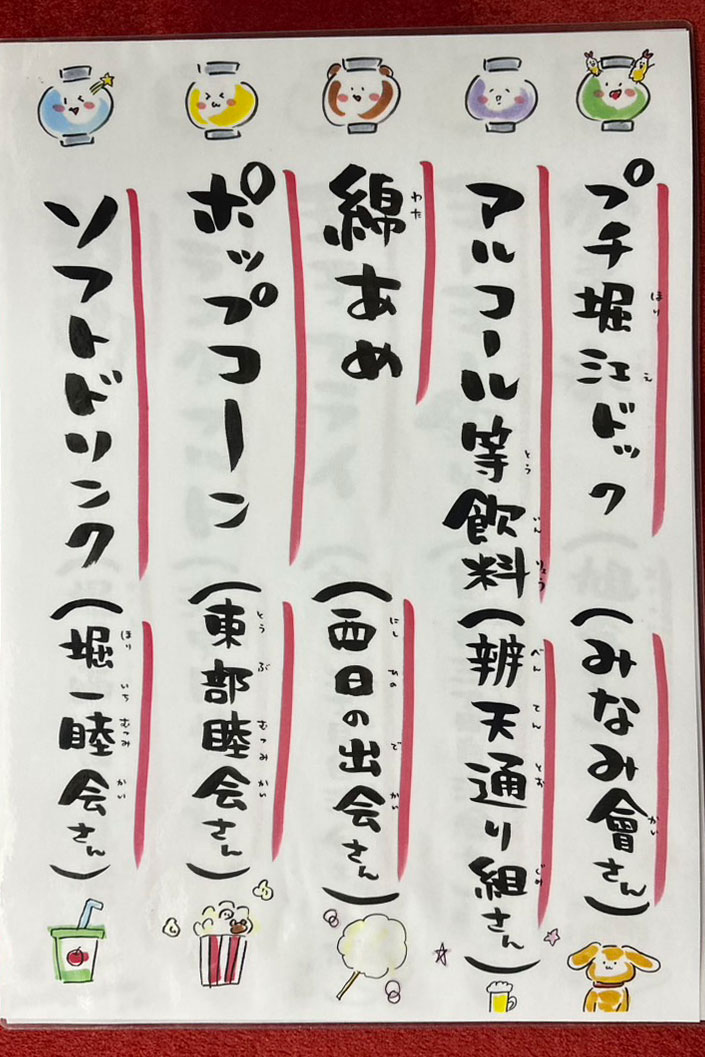 プチ堀江ドック(みなみ會さん)
アルコール等飲料(辨天通り組さん)
綿あめ(西日の出会さん)
ポップコーン(東部睦会さん)
ソフトドリンク(堀一睦会さん)